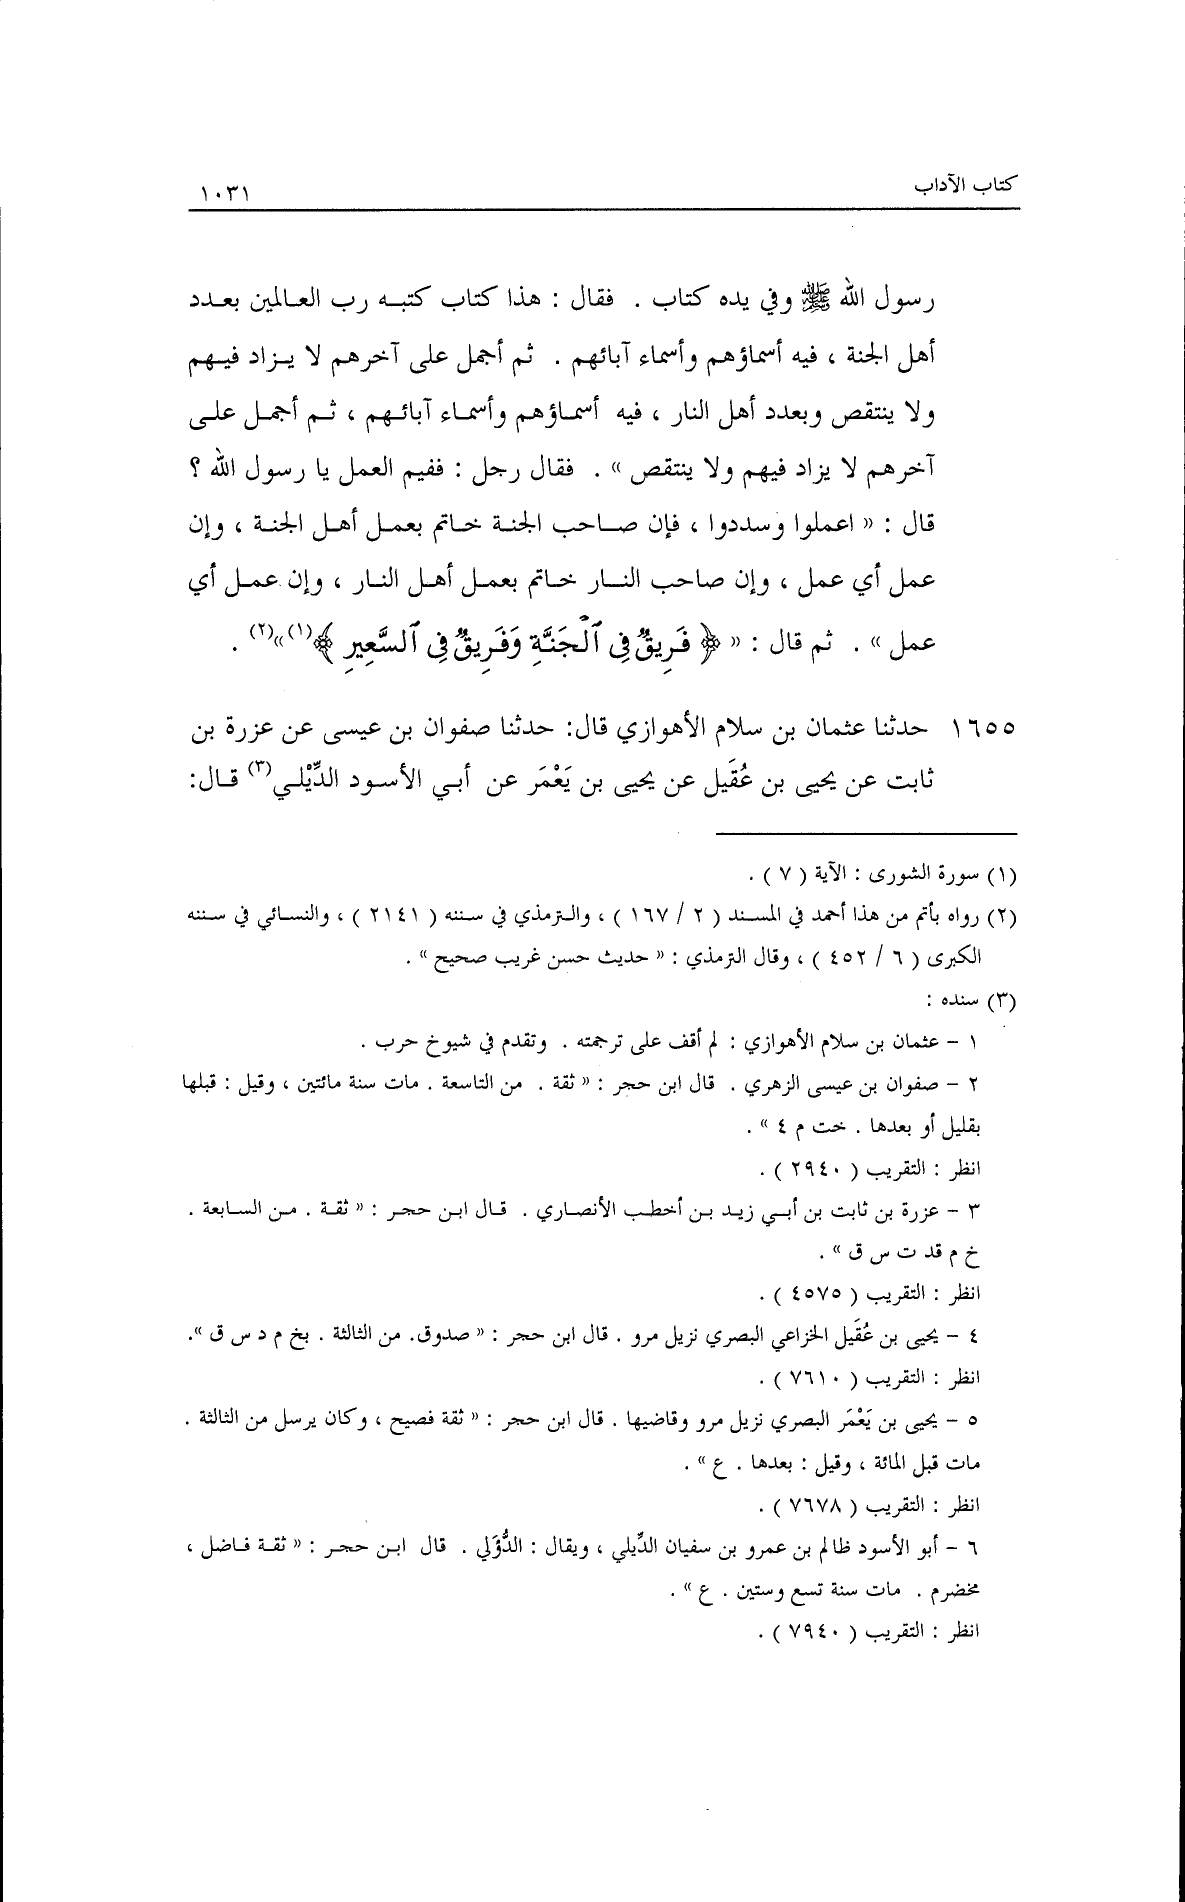 كتاب الآداب ١٠٣١
رسول الله ﷺ وفي يده كتاب . فقال : هذا كتاب كتبه رب العالمين بعدد
أهل الجنة ، فيه أسماؤهم وأسماء آبائهم . ثم أجمل على آخرهم لا يزاد فيهم
ولا ينتقص وبعدد أهل النار ، فيه أسماؤهم وأسماء آبائهم ، ثم أجمل على
آخرهم لا يزاد فيهم ولا ينتقص » . فقال رجل : ففيم العمل يا رسول الله ؟
قال : « اعملوا وسددوا ، فإن صاحب الجنة خاتم بعمل أهل الجنة ، وإن
عمل أي عمل ، وإن صاحب النار خاتم بعمل أهل النار ، وإن عمل أي
عمل » . ثم قال : « ﴿ فَرِيقٌ فِي ٱلْجَنَّةِ وَفَرِيقٌ فِي ٱلسَّعِيرِ ﴾(١)»(٢) .
١٦٥٥ حدثنا عثمان بن سلام الأهوازي قال: حدثنا صفوان بن عيسى عن عزرة بن
ثابت عن يحيى بن عُقَيل عن يحيى بن يَعْمَر عن أبي الأسود الدِّيْلي(٣) قال:
(١) سورة الشورى : الآية ( ٧ ) .
(٢) رواه بأتم من هذا أحمد في المسند ( ٢ / ١٦٧ ) ، والترمذي في سننه ( ٢١٤١ ) ، والنسائي في سننه
الكبرى ( ٦ / ٤٥٢ ) ، وقال الترمذي : « حديث حسن غريب صحيح » .
(٣) سنده :
١ - عثمان بن سلام الأهوازي : لم أقف على ترجمته . وتقدم في شيوخ حرب .
٢ - صفوان بن عيسى الزهري . قال ابن حجر : « ثقة . من التاسعة . مات سنة مائتين ، وقيل : قبلها
بقليل أو بعدها . خت م ٤ » .
انظر : التقريب ( ٢٩٤٠ ) .
٣ - عزرة بن ثابت بن أبي زيد بن أخطب الأنصاري . قال ابن حجر : « ثقة . من السابعة .
خ م قد ت س ق » .
انظر : التقريب ( ٤٥٧٥ ) .
٤ - يحيى بن عُقَيل الخزاعي البصري نزيل مرو . قال ابن حجر : « صدوق. من الثالثة . بخ م د س ق ».
انظر : التقريب ( ٧٦١٠ ) .
٥ - يحيى بن يَعْمَر البصري نزيل مرو وقاضيها . قال ابن حجر : « ثقة فصيح ، وكان يرسل من الثالثة .
مات قبل المائة ، وقيل : بعدها . ع » .
انظر : التقريب ( ٧٦٧٨ ) .
٦ - أبو الأسود ظالم بن عمرو بن سفيان الدِّيلي ، ويقال : الدُّؤَلي . قال ابن حجر : « ثقة فاضل ،
مخضرم . مات سنة تسع وستين . ع » .
انظر : التقريب ( ٧٩٤٠ ) .